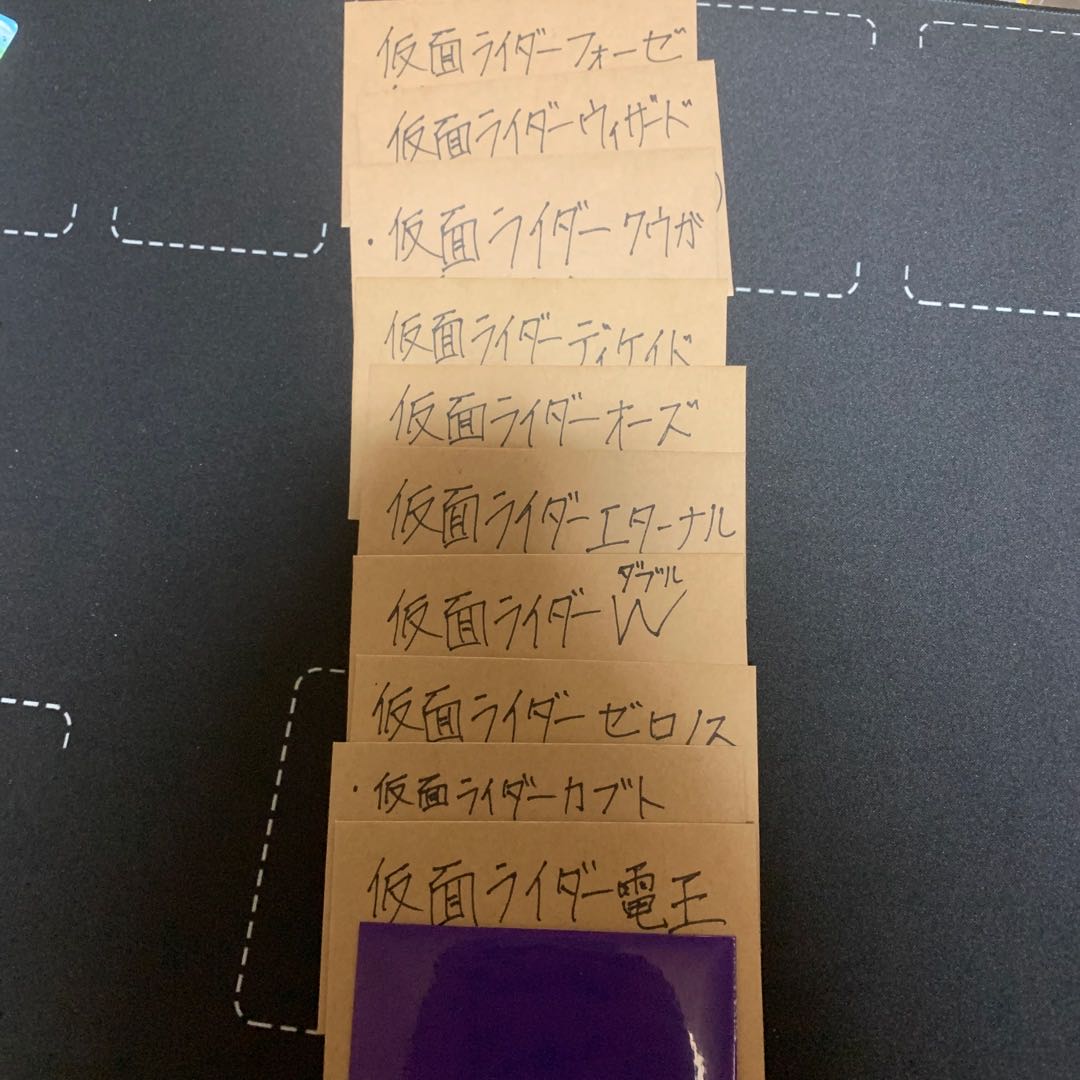 仮面ライダーフォーゼ
仮面ライダーウィザード
・仮面ライダークウガ
仮面ライダーディケイド
仮面ライダーオーズ
仮面ライダーエターナル
ダブル
仮面ライダーW
仮面ライダーゼロノス
・仮面ライダーカブト
仮面ライダー電王